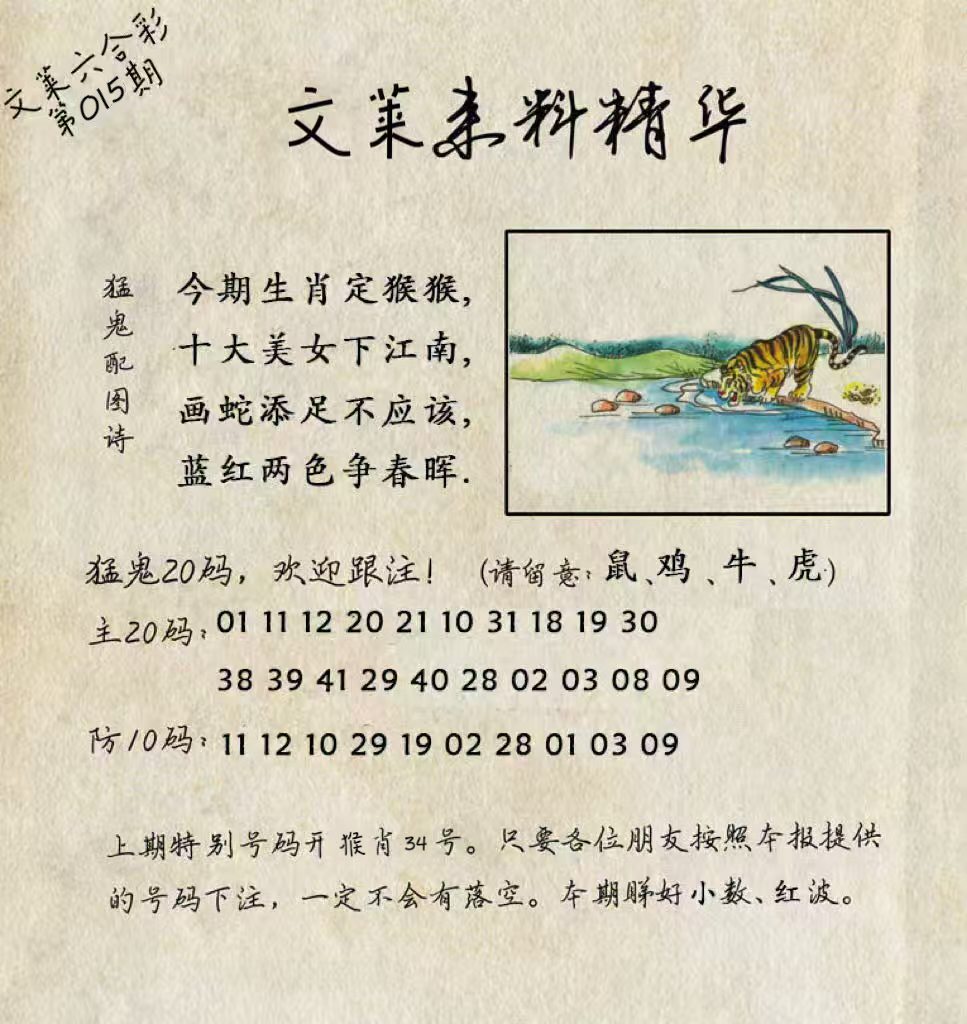 文莱六合彩
第015期
文莱来料精华
猛鬼配图诗
今期生肖定猴猴,
十大美女下江南,
画蛇添足不应该,
蓝红两色争春晖.
猛鬼20码，欢迎跟注！ (请留意：鼠、鸡、牛、虎.)
主20码：01 11 12 20 21 10 31 18 19 30
38 39 41 29 40 28 02 03 08 09
防10码：11 12 10 29 19 02 28 01 03 09
上期特别号码开猴肖34号。只要各位朋友按照本报提供
的号码下注，一定不会有落空。本期睇好小数、红波。